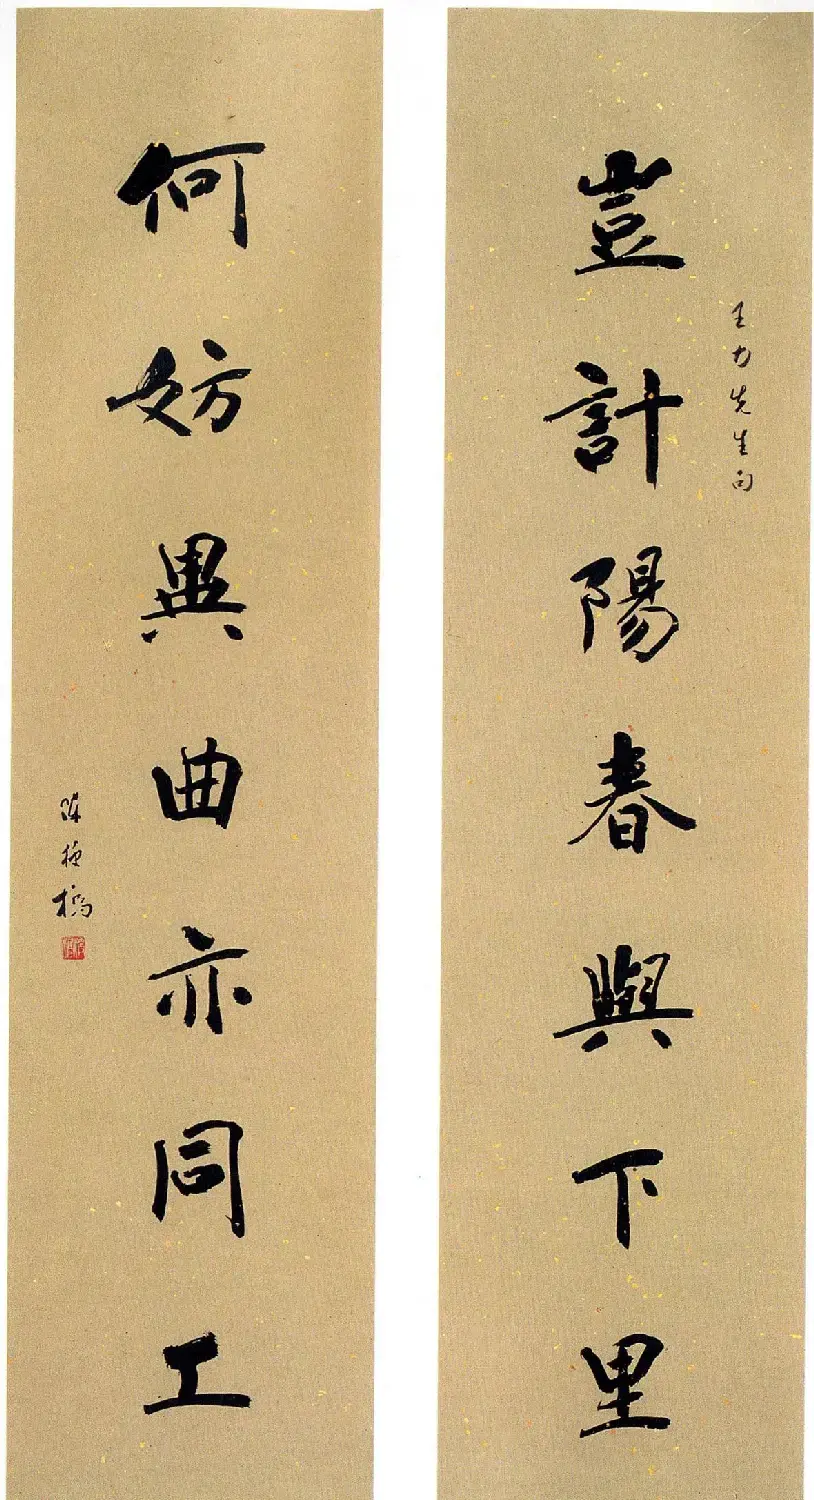 豈計陽春與下里
王力先生句
何妨異曲亦同工
陳極橋